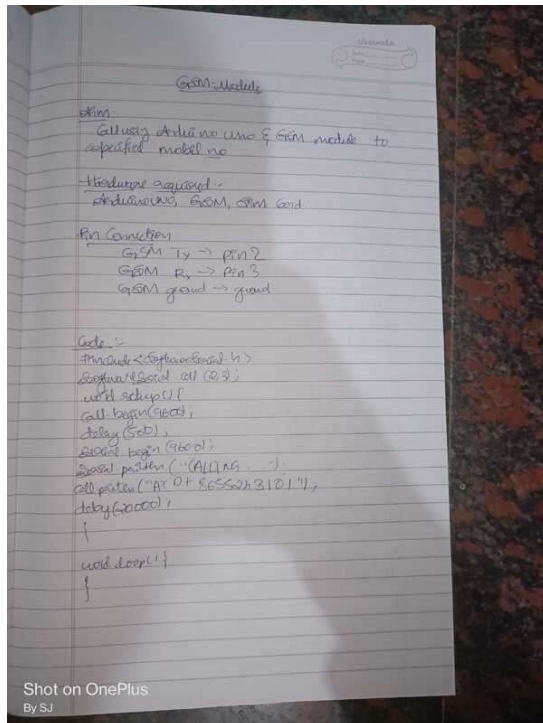 classmate
Date
Page
GSM-Module
Aim:
Call using Arduino Uno & GSM module to
specified mobil no
Hardware required :-
Arduino UNO, GSM, SIM Card
Pin Connection
GSM Tx -> pin 2
GSM Rx -> pin 3
GSM ground -> ground
Code :-
#include <SoftwareSerial.h>
SoftwareSerial call (2,3);
void setup() {
call.begin(9600);
delay(500);
Serial.begin(9600);
Serial.println("CALLING
call.println("ATD+
delay(20000);
}
void loop() {
}
Shot on OnePlus
By SJ